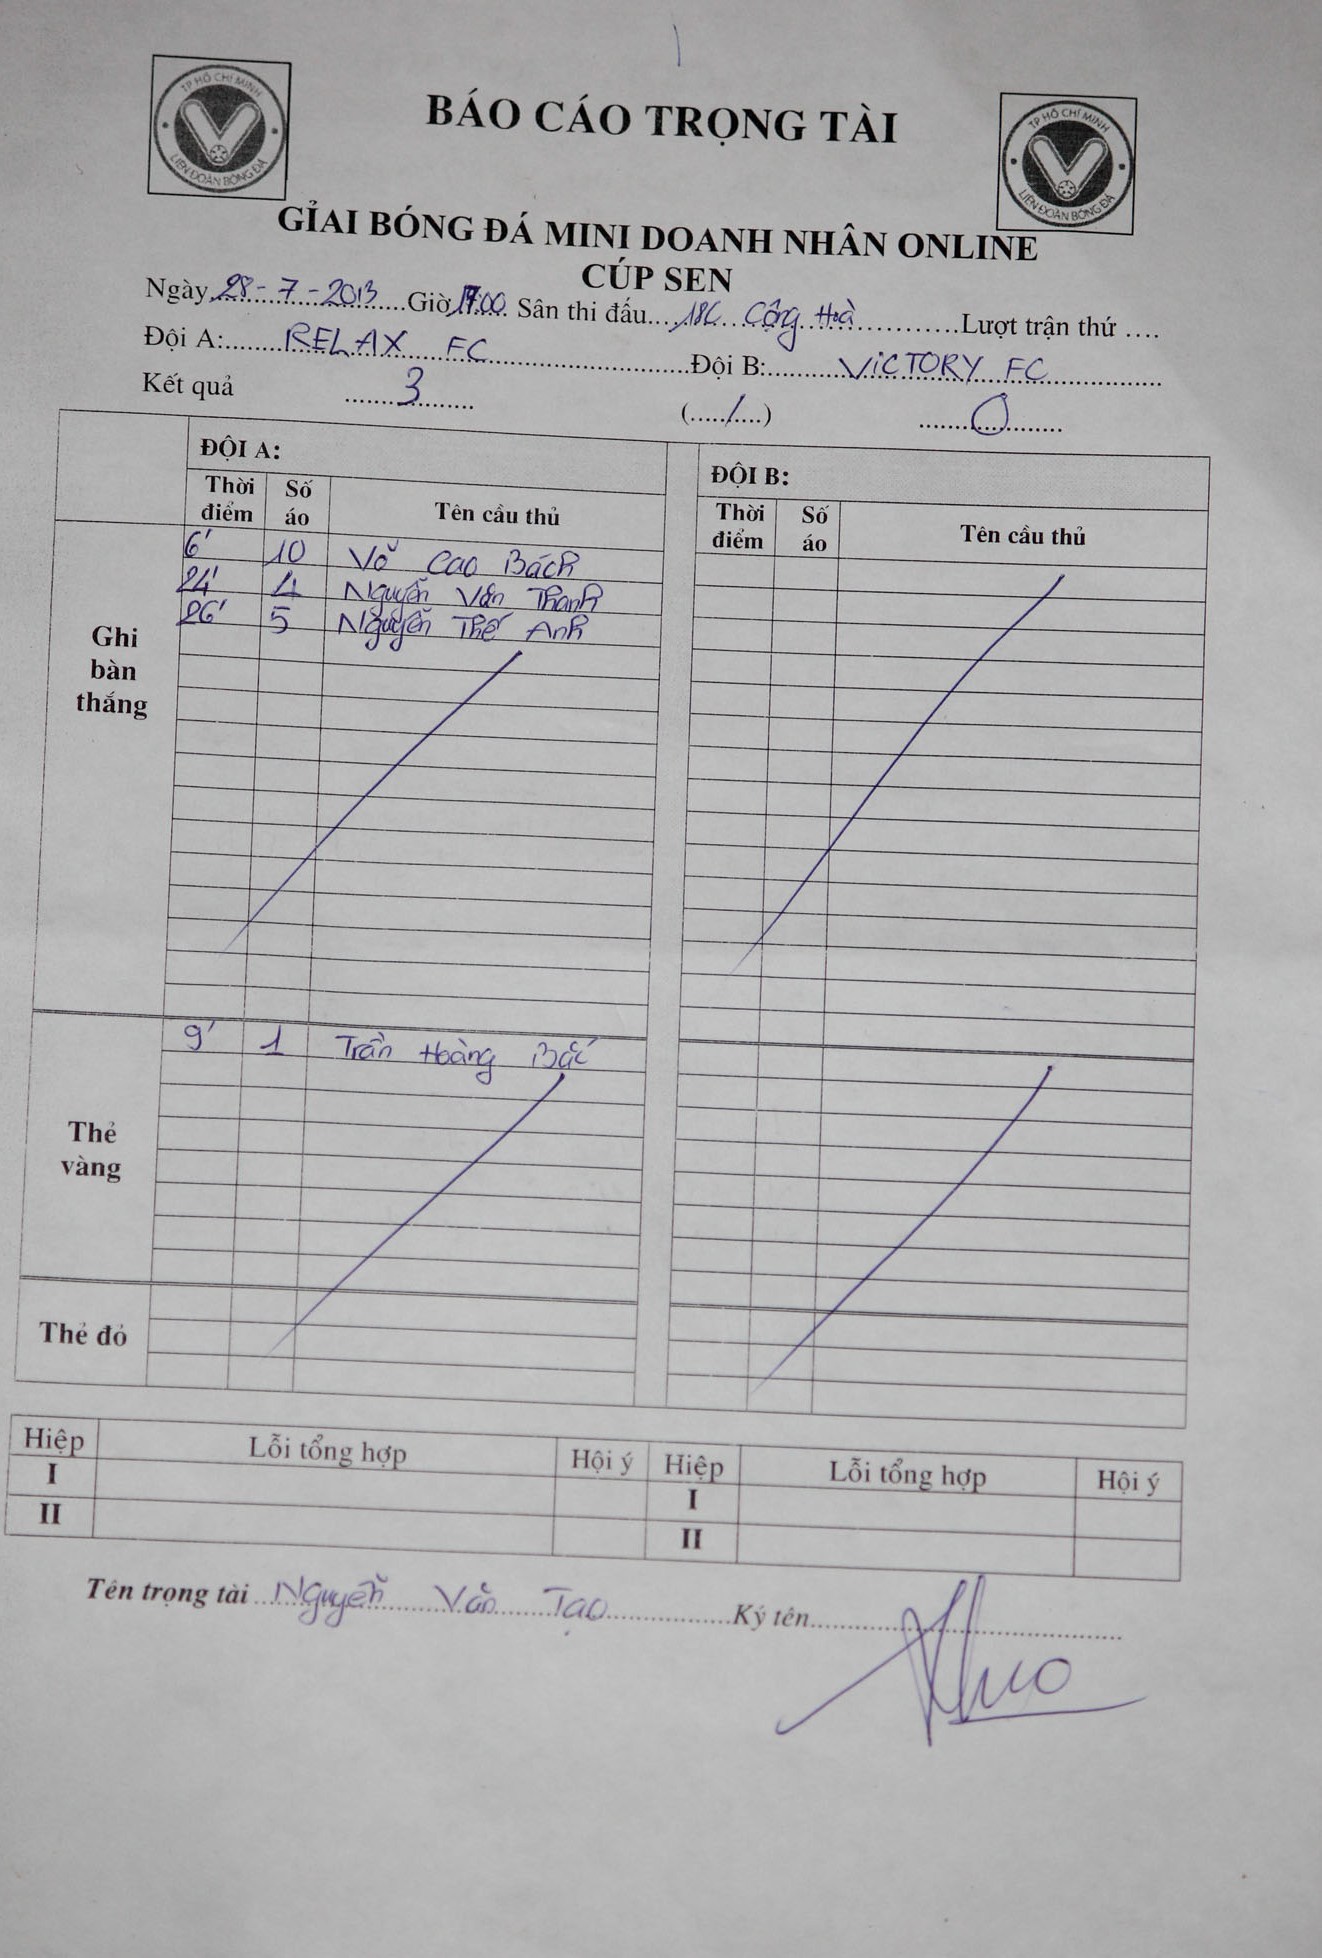 TP HỒ CHÍ MINH
LIÊN ĐOÀN BÓNG ĐÁ
BÁO CÁO TRỌNG TÀI
TP HỒ CHÍ MINH
LIÊN ĐOÀN BÓNG ĐÁ
GỈAI BÓNG ĐÁ MINI DOANH NHÂN ONLINE
CÚP SEN
Ngày 28-7-2013 Giờ Sân thi đấu... 18C Cộng Hoà Lượt trận thứ ....
Đội A: RELAX FC Đội B: VICTORY FC
Kết quả 3 (...../.....) 0
ĐỘI A: ĐỘI B:
Thời điểm Số áo Tên cầu thủ Thời điểm Số áo Tên cầu thủ
Ghi bàn thắng
6' 10 Võ Cao Bách
24' 4 Nguyễn Văn Thanh
26' 5 Nguyễn Thế Anh
Thẻ vàng
9' 1 Trần Hoàng Bắc
Thẻ đỏ
Hiệp Lỗi tổng hợp Hội ý Hiệp Lỗi tổng hợp Hội ý
I I
II II
Tên trọng tài Nguyễn Văn Tạo Ký tên